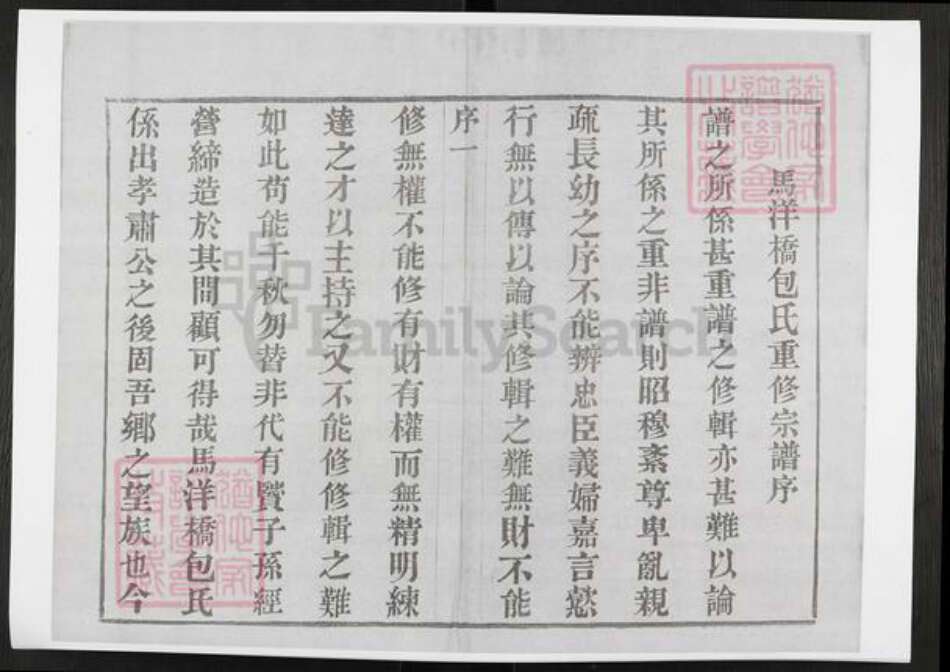 馬洋橋包氏重修宗譜序
譜之所係甚重譜之修輯亦甚難以論
其所係之重非譜則昭穆紊尊卑亂親
疏長幼之序不能辨忠臣義婦嘉言懿
行無以傳以論其修輯之難無財不能
序一
修無權不能修有財有權而無精明練
達之才以主持之又不能修修輯之難
如此苟能千秋勿替非代有賢子孫經
營締造於其間顧可得哉馬洋橋包氏
係出孝肅公之後固吾鄉之望族也今
FamilySearch